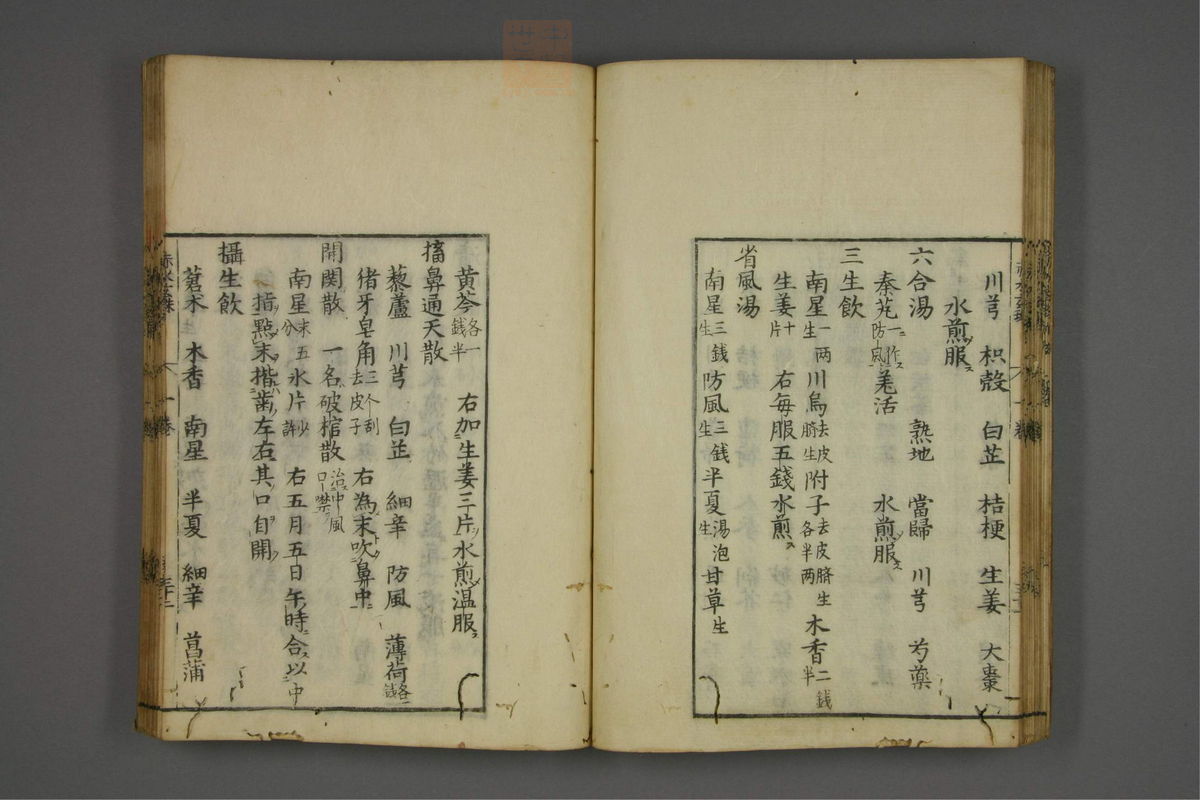 川芎 枳殻 白芷 桔梗 生姜 大棗
水煎服ス
六合湯 熟地 當歸 川芎 芍藥
秦艽一作防風ス 羌活 水煎服ス
三生飲
南星一兩生 川烏去皮臍生 附子去皮臍生各半兩 木香二錢半
生姜十片 右毎服五錢水煎ス
省風湯
南星三錢生 防風三錢生 半夏湯泡生 甘草生
黄芩各一錢半 右加生姜三片水煎温服ス
搐鼻通天散
藜蘆 川芎 白芷 細辛 防風 薄荷各一錢
猪牙皂角三个刮去皮子 右為末吹鼻中
開関散 一名破棺散治中風口噤
南星末五分 氷片少許 右五月五日午時合以中
指點末揩齒左右其口自開
攝生飲
蒼朮 木香 南星 半夏 細辛 菖蒲
赤水玄珠 一巻